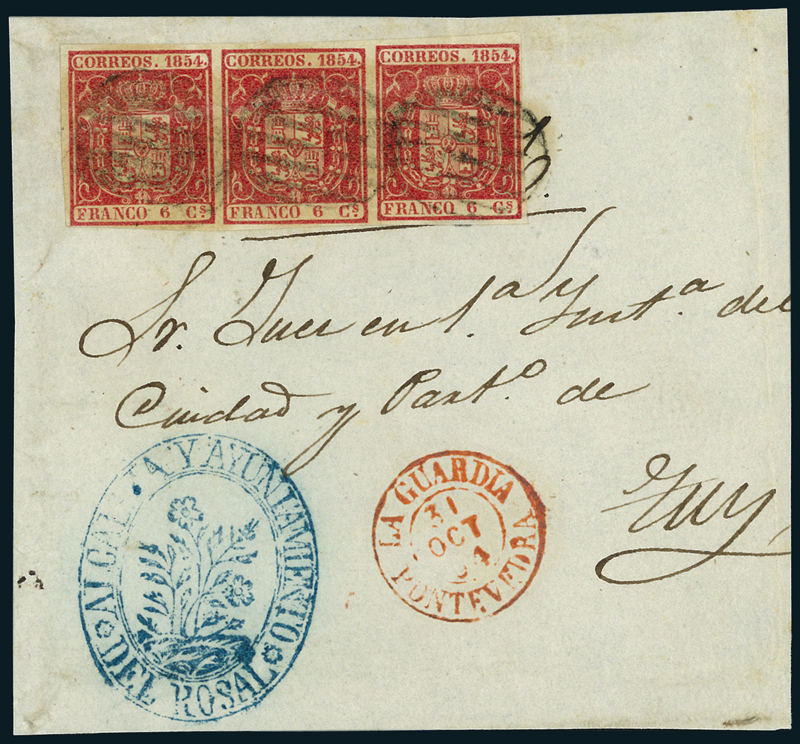 CORREOS. 1854. CORREOS. 1854. CORREOS. 1854.
FRANCO 6 Cs FRANCO 6 Cs FRANCO 6 Cs
Sr. Juez en 1.ª Ynst.ª del
Ciudad y Part.º de
Tuy
ALCALDIA Y AYUNTAMIENTO
DEL ROSAL
LA GUARDIA
31
OCT
54
PONTEVEDRA